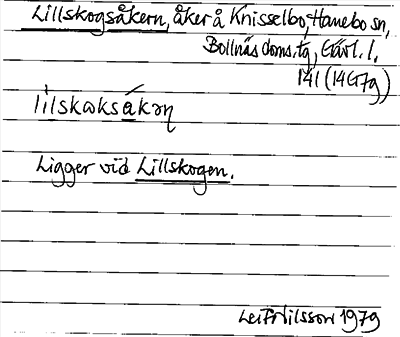 Lillskogsåkern, åker å Knisselbo, Hanebo sn,
Bollnäs doms. tg, Gävl. l.
141 (14G7g)
lilskoksákəɳ
Ligger vid Lillskogen.
Leif Nilsson 1979